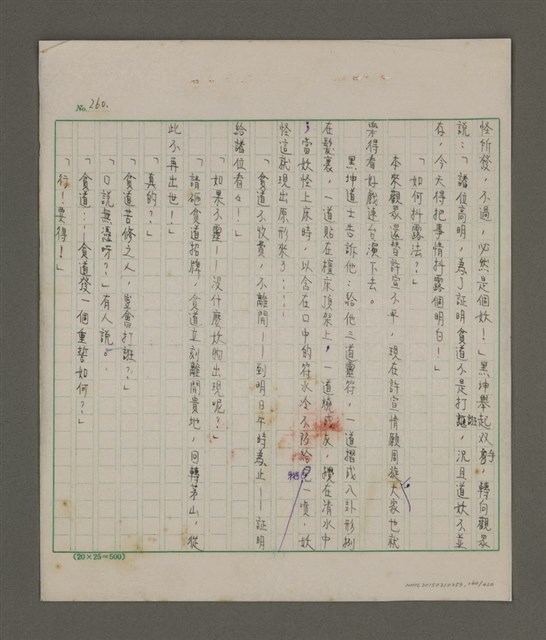 No. 260.
怪所發，不過，必然是個妖！」黑坤舉起双手，轉向觀眾
說：「諸位高明，為了証明貧道不是打誑，況且道妖不並
存，今天得把事情抖露個明白！」
「如何抖露法？」
本來觀眾還替許宣不平，現在許宣情願周旋，大家也就
樂得看好戲連台演下去。
黑坤道士告訴他：給他三道靈符，一道摺成八卦形捆
在髮裏，一道貼在檀床頂架上，一道燒成灰，攪在清水中
；當妖怪上床時，以含在口中的符水冷不防給她一噴，妖
怪這就現出原形來了……
「貧道不收費，不離開——到明日午時為止——証明
給諸位看々！」
「如果不靈——沒什麼妖物出現呢？」
「請砸貧道招牌，貧道立刻離開貴地，回轉茅山，從
此不再出世！」
「真的？」
「貧道苦修之人，豈會打誑？」
「口說無憑呀？」有人說。
「貧道……貧道發一個重誓如何？」
「行！要得！」
(20×25=500)